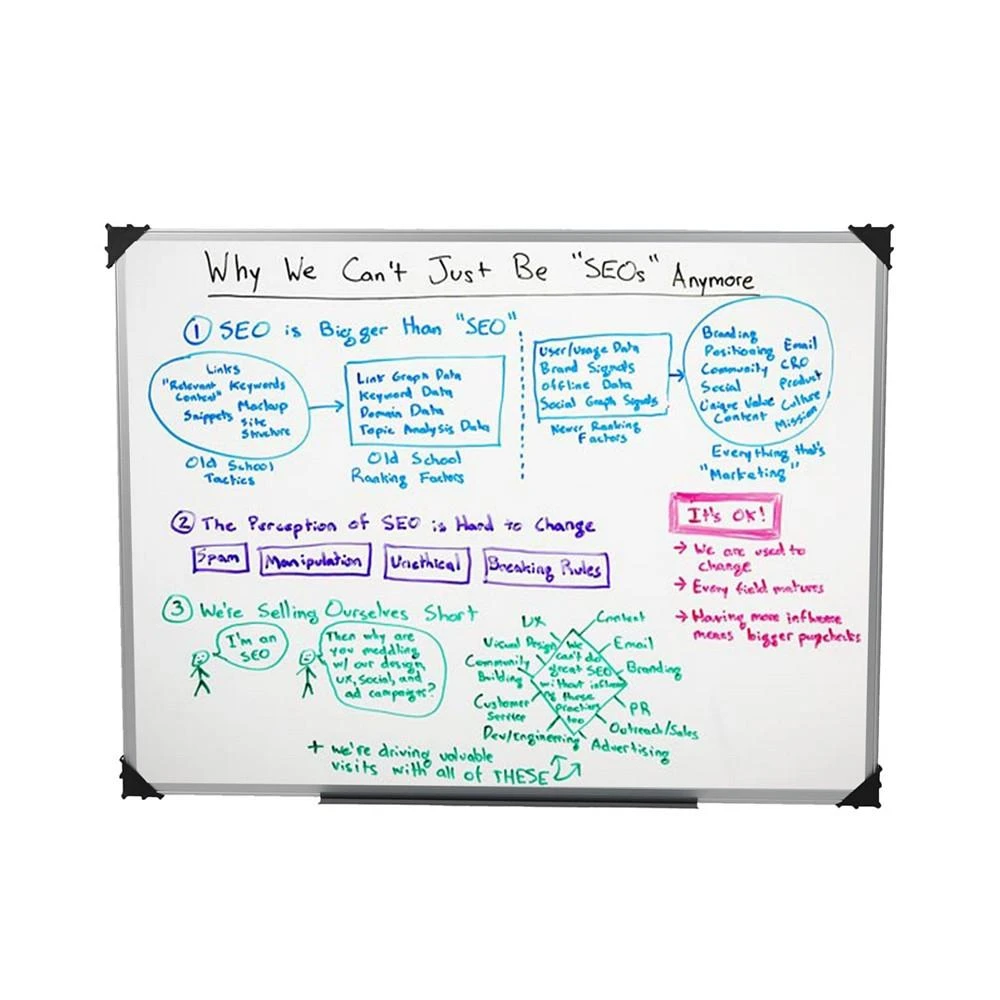 Why We Can't Just Be "SEOs" Anymore
1 SEO is Bigger than "SEO"
Links
"Relevant Keywords
Content"
Snippets Markup
Site
Structure
Old School
Tactics
Link Graph Data
Keyword Data
Domain Data
Topic Analysis Data
Old School
Ranking Factors
User/Usage Data
Brand Signals
Offline Data
Social Graph Signals
Newer Ranking
Factors
Branding
Positioning Email
Community CRO
Social Product
Unique Value Culture
Content Mission
Everything that's
"Marketing"
2 The Perception of SEO is Hard to Change
Spam Manipulation Unethical Breaking Rules
It's OK!
→ We are used to
change
→ Every field matures
→ Having more influence
means bigger paychecks
3 We're Selling Ourselves Short
I'm an
SEO
Then why are
you meddling
w/ our design,
UX, social, and
ad campaigns?
UX
Visual Design
Community
Building
Customer
Service
Dev/Engineering
We
can't do
great SEO
without influence
these
practices
too
Content
Email
Branding
PR
Outreach/Sales
Advertising
+ we're driving valuable
visits with all of THESE